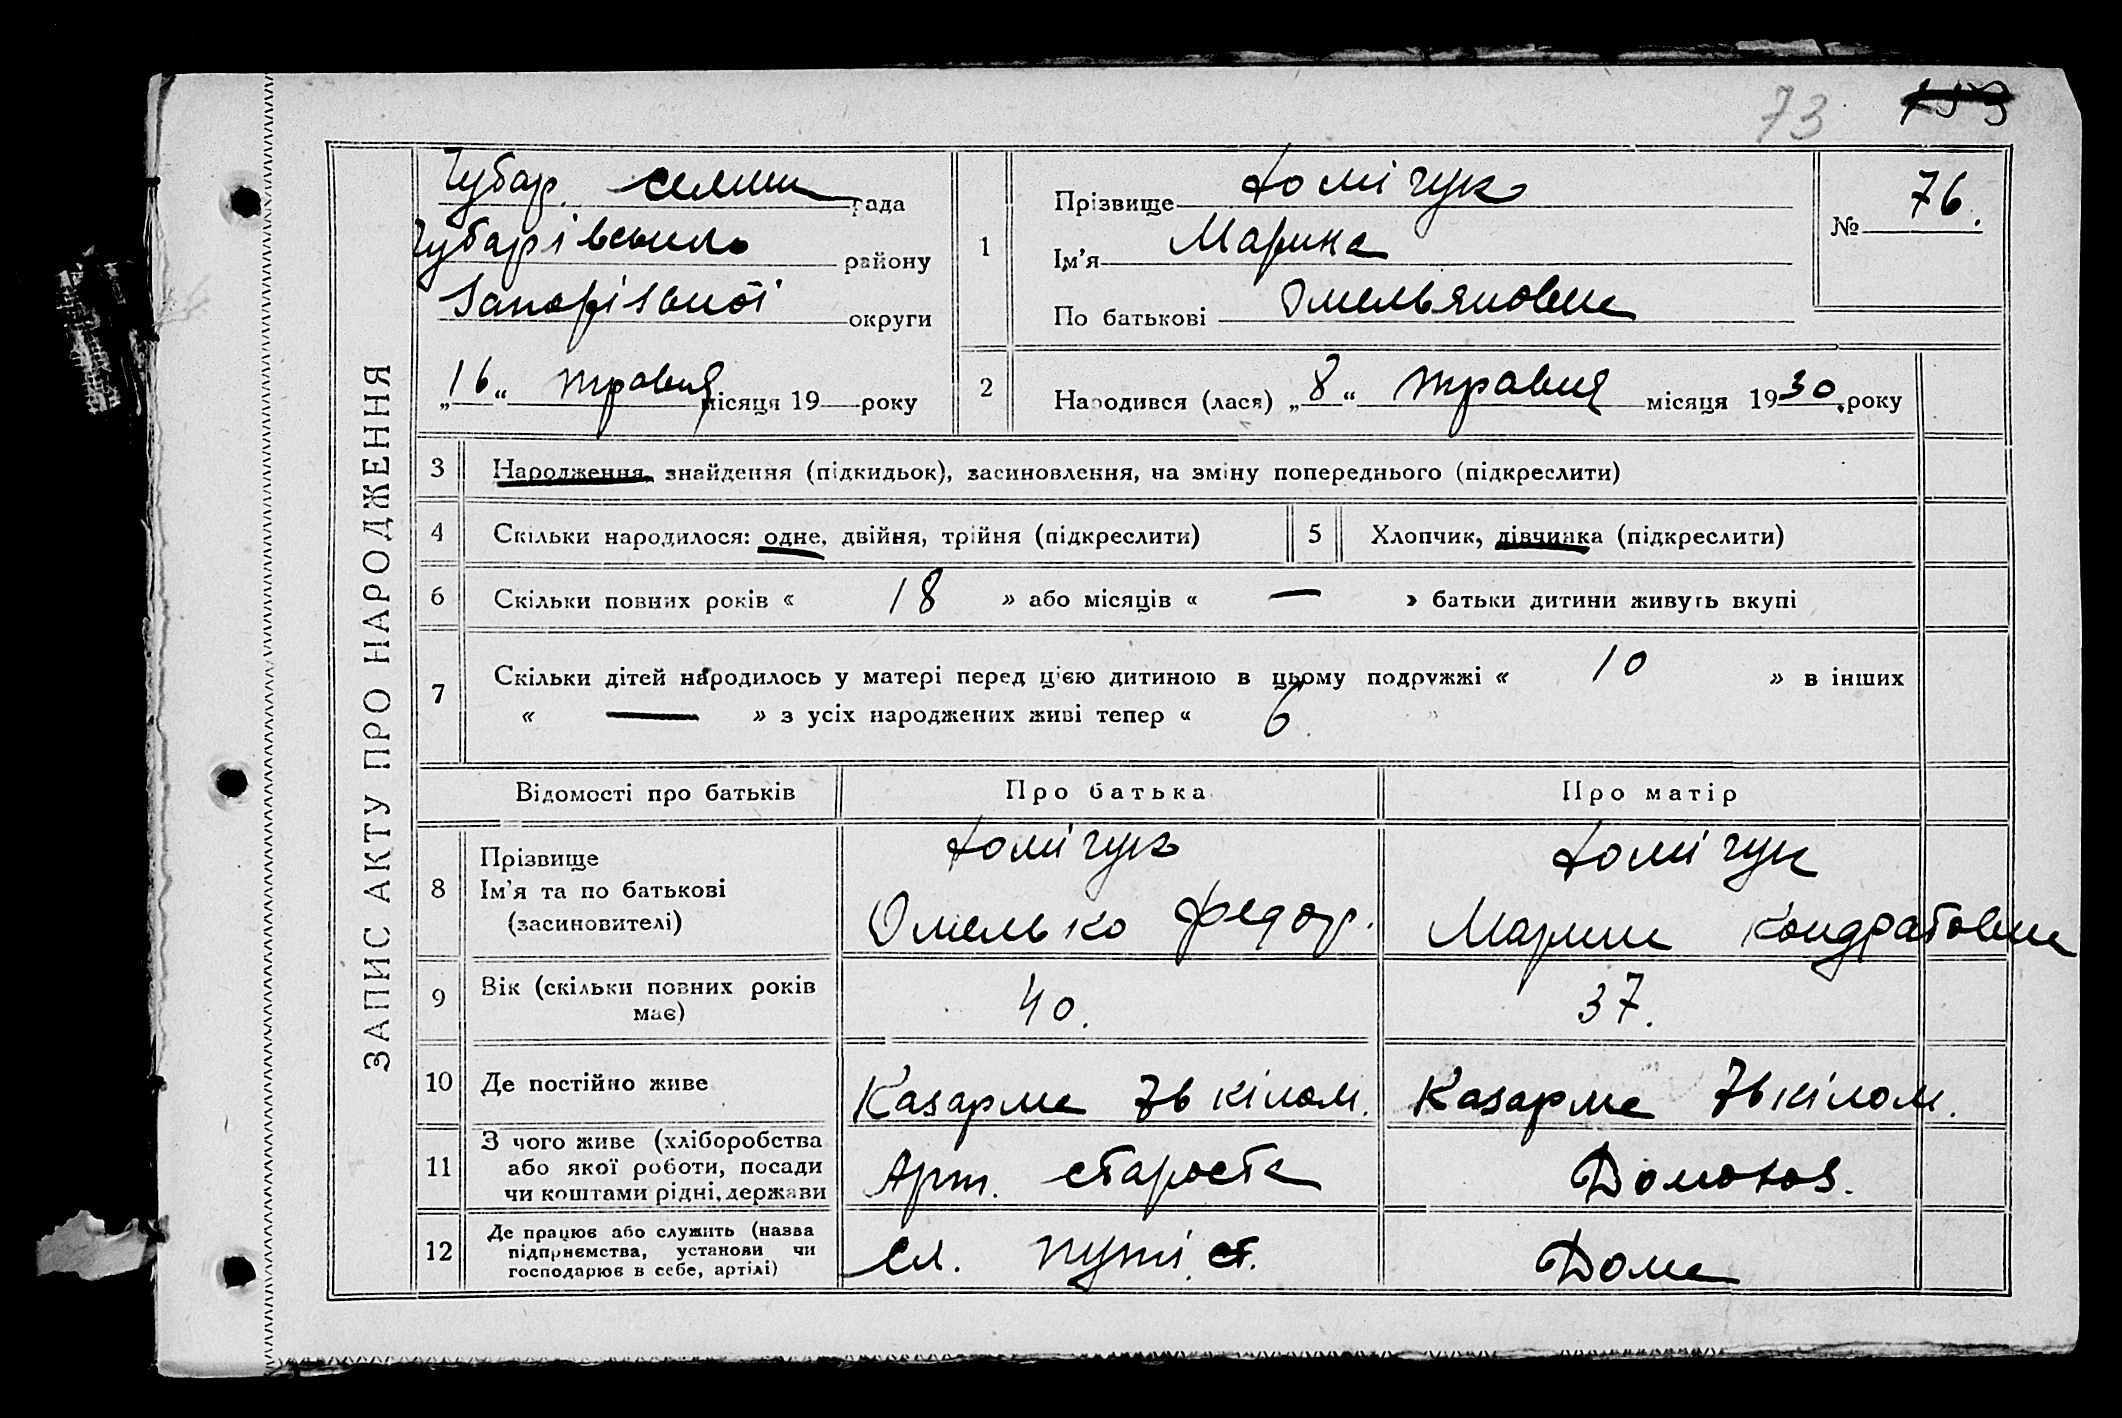 73 153
ЗАПИС АКТУ ПРО НАРОДЖЕННЯ
Чубар. селищ рада
Чубарівського району
Запорізької округи
„16“ травня місяця 19 року
1
Прізвище Хомічук
Ім'я Марина
По батькові Омельяновна
№ 76.
2
Народився (лася) „8“ травня місяця 1930 року
3 Народження, знайдення (підкидьок), засиновлення, на зміну попереднього (підкреслити)
4 Скільки народилося: одне, двійня, трійня (підкреслити)
5 Хлопчик, дівчинка (підкреслити)
6 Скільки повних років « 18 » або місяців « — » батьки дитини живуть вкупі
7 Скільки дітей народилось у матері перед цією дитиною в цьому подружжі « 10 » в інших
« — » з усіх народжених живі тепер « 6 »
Відомості про батьків Про батька Про матір
8 Прізвище
Ім'я та по батькові
(засиновителі)
Хомічук
Омелько Федор.
Хомічук
Марина Кондратовна
9 Вік (скільки повних років
має)
40. 37.
10 Де постійно живе Казарма 76 кілом. Казарма 76 кілом.
11 З чого живе (хліборобства
або якої роботи, посади
чи коштами рідні, держави
Арт. староста Домохоз.
12 Де працює або служить (назва
підприємства, установи чи
господарює в себе, артілі)
Сл. путі ст. Дома